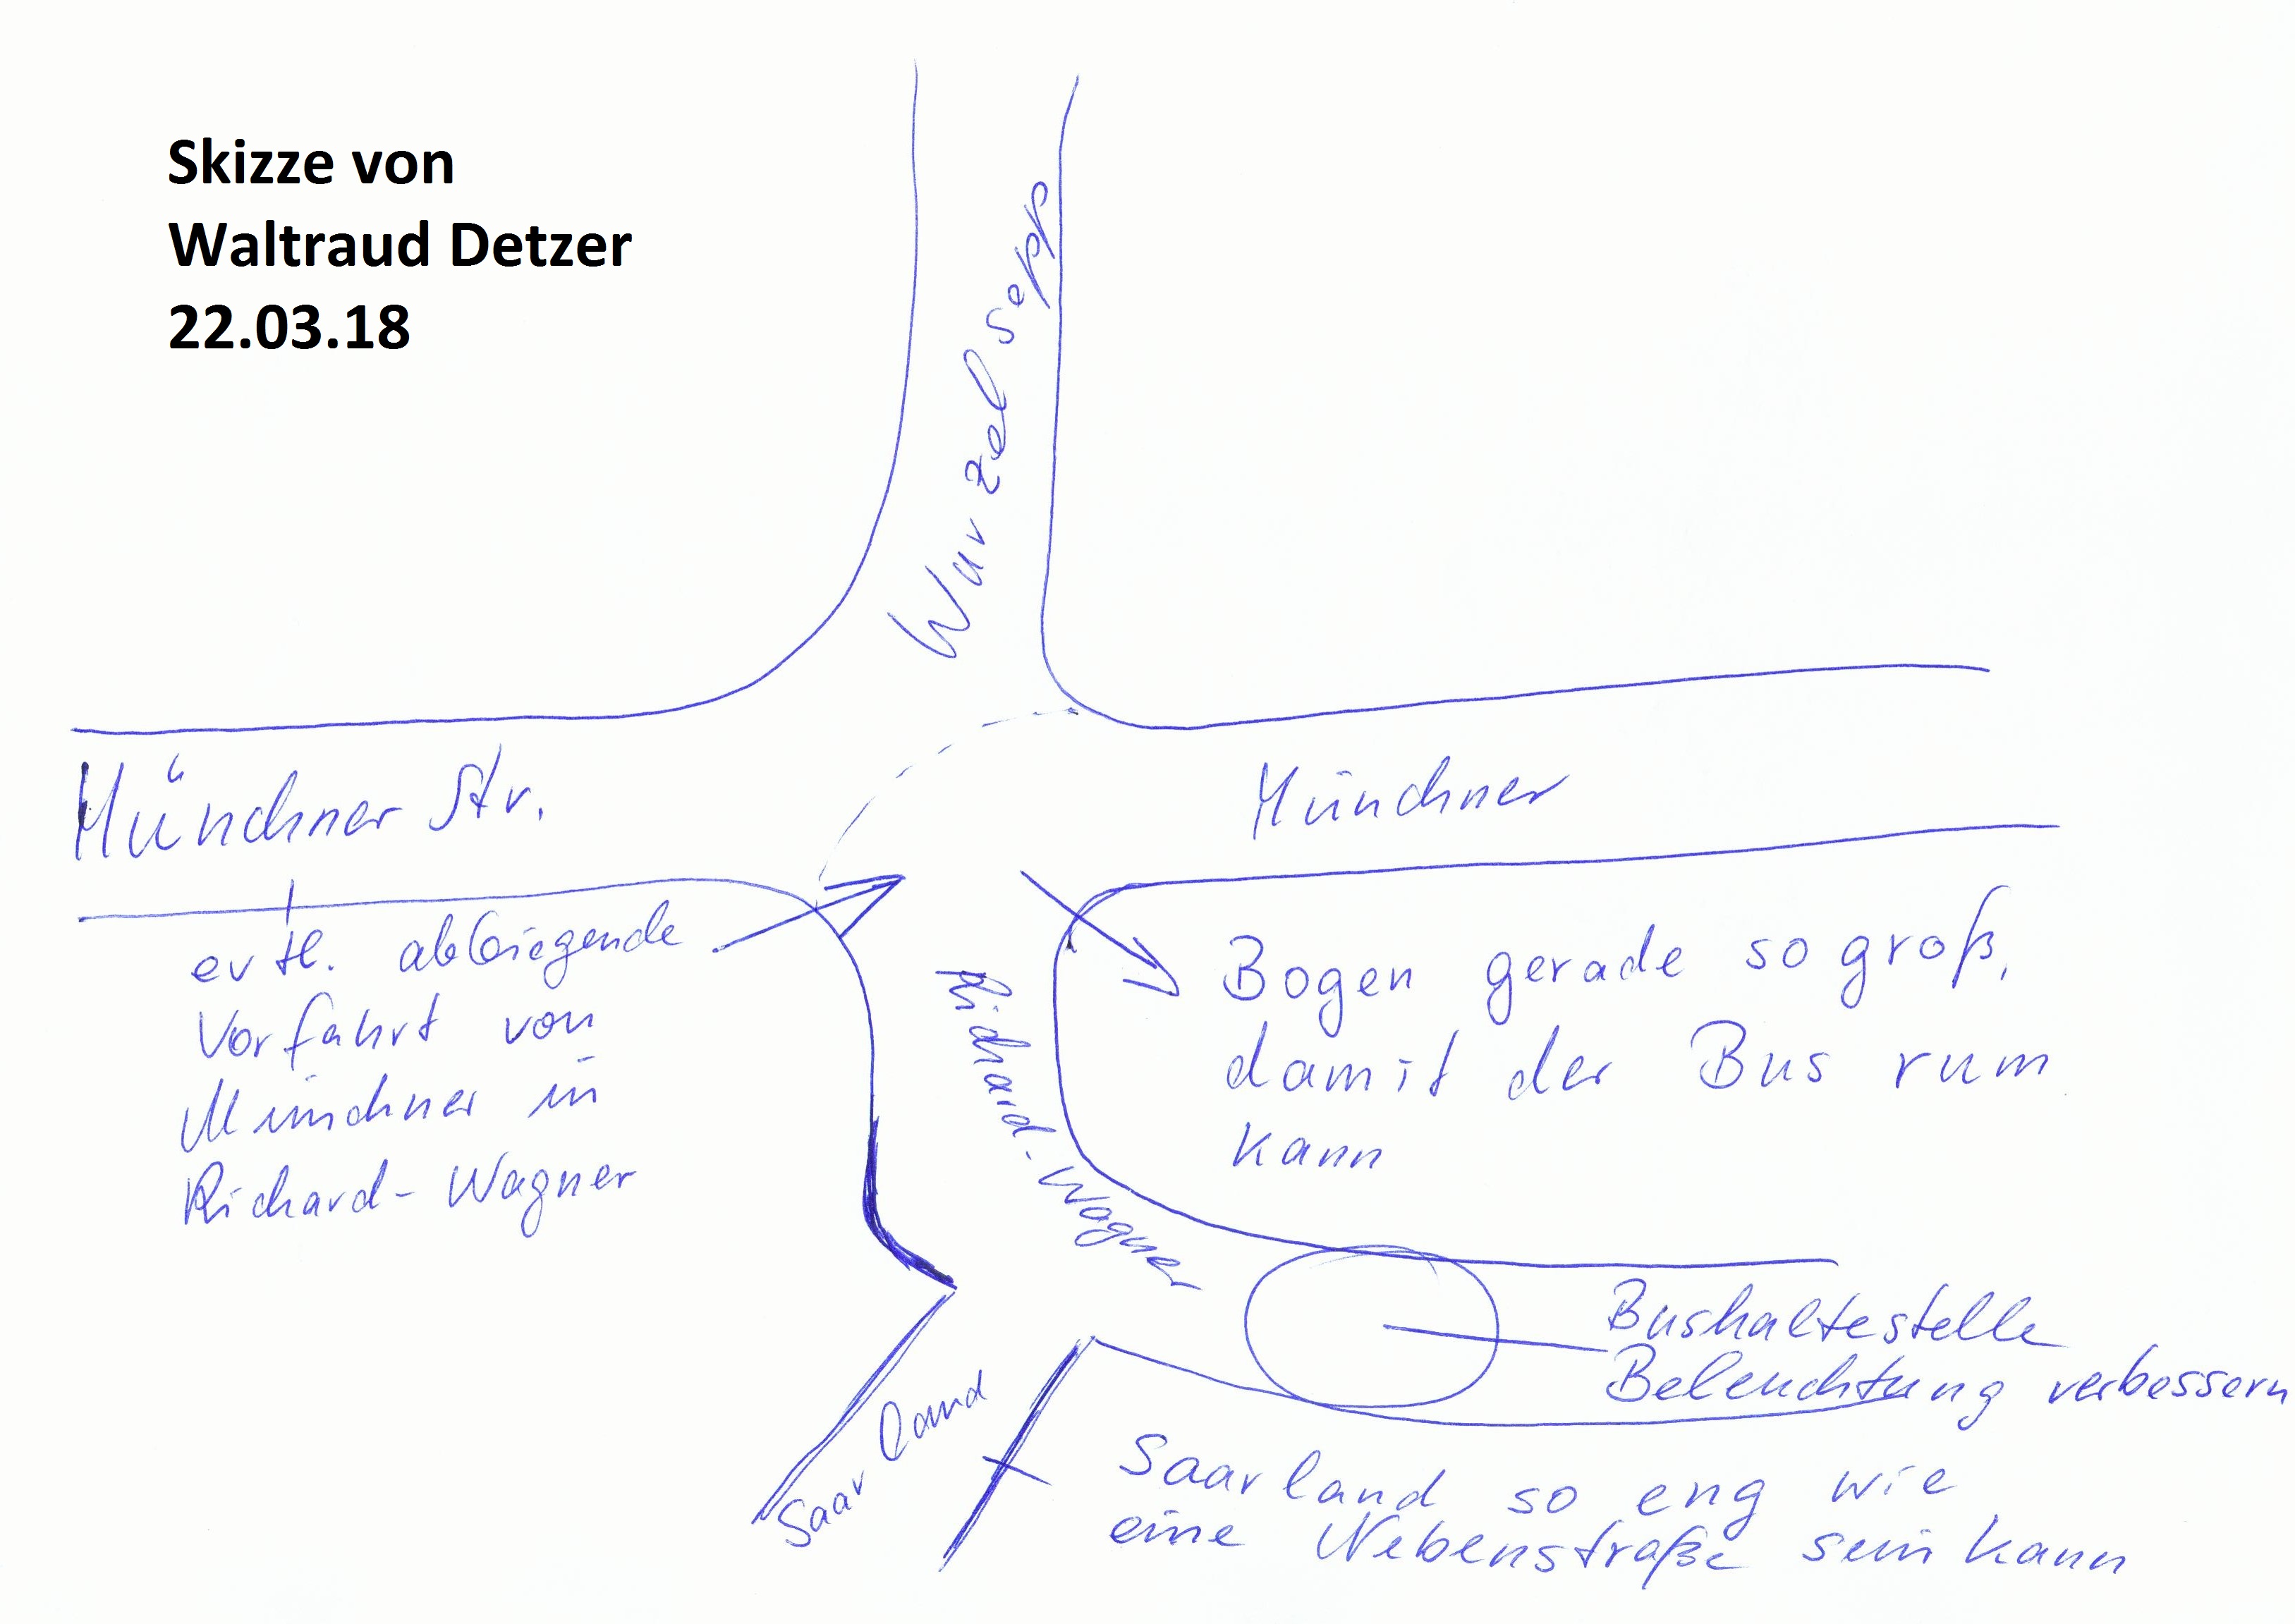 Skizze von
Waltraud Detzer
22.03.18
Wurzelsepp
Münchner Str.
Münchner
evtl. abbiegende
Vorfahrt von
Münchner in
Richard-Wagner
Bogen gerade so groß,
damit der Bus rum
kann
Richard-Wagner
Bushaltestelle
Beleuchtung verbessern
Saarland
Saarland so eng wie
eine Nebenstraße sein kann